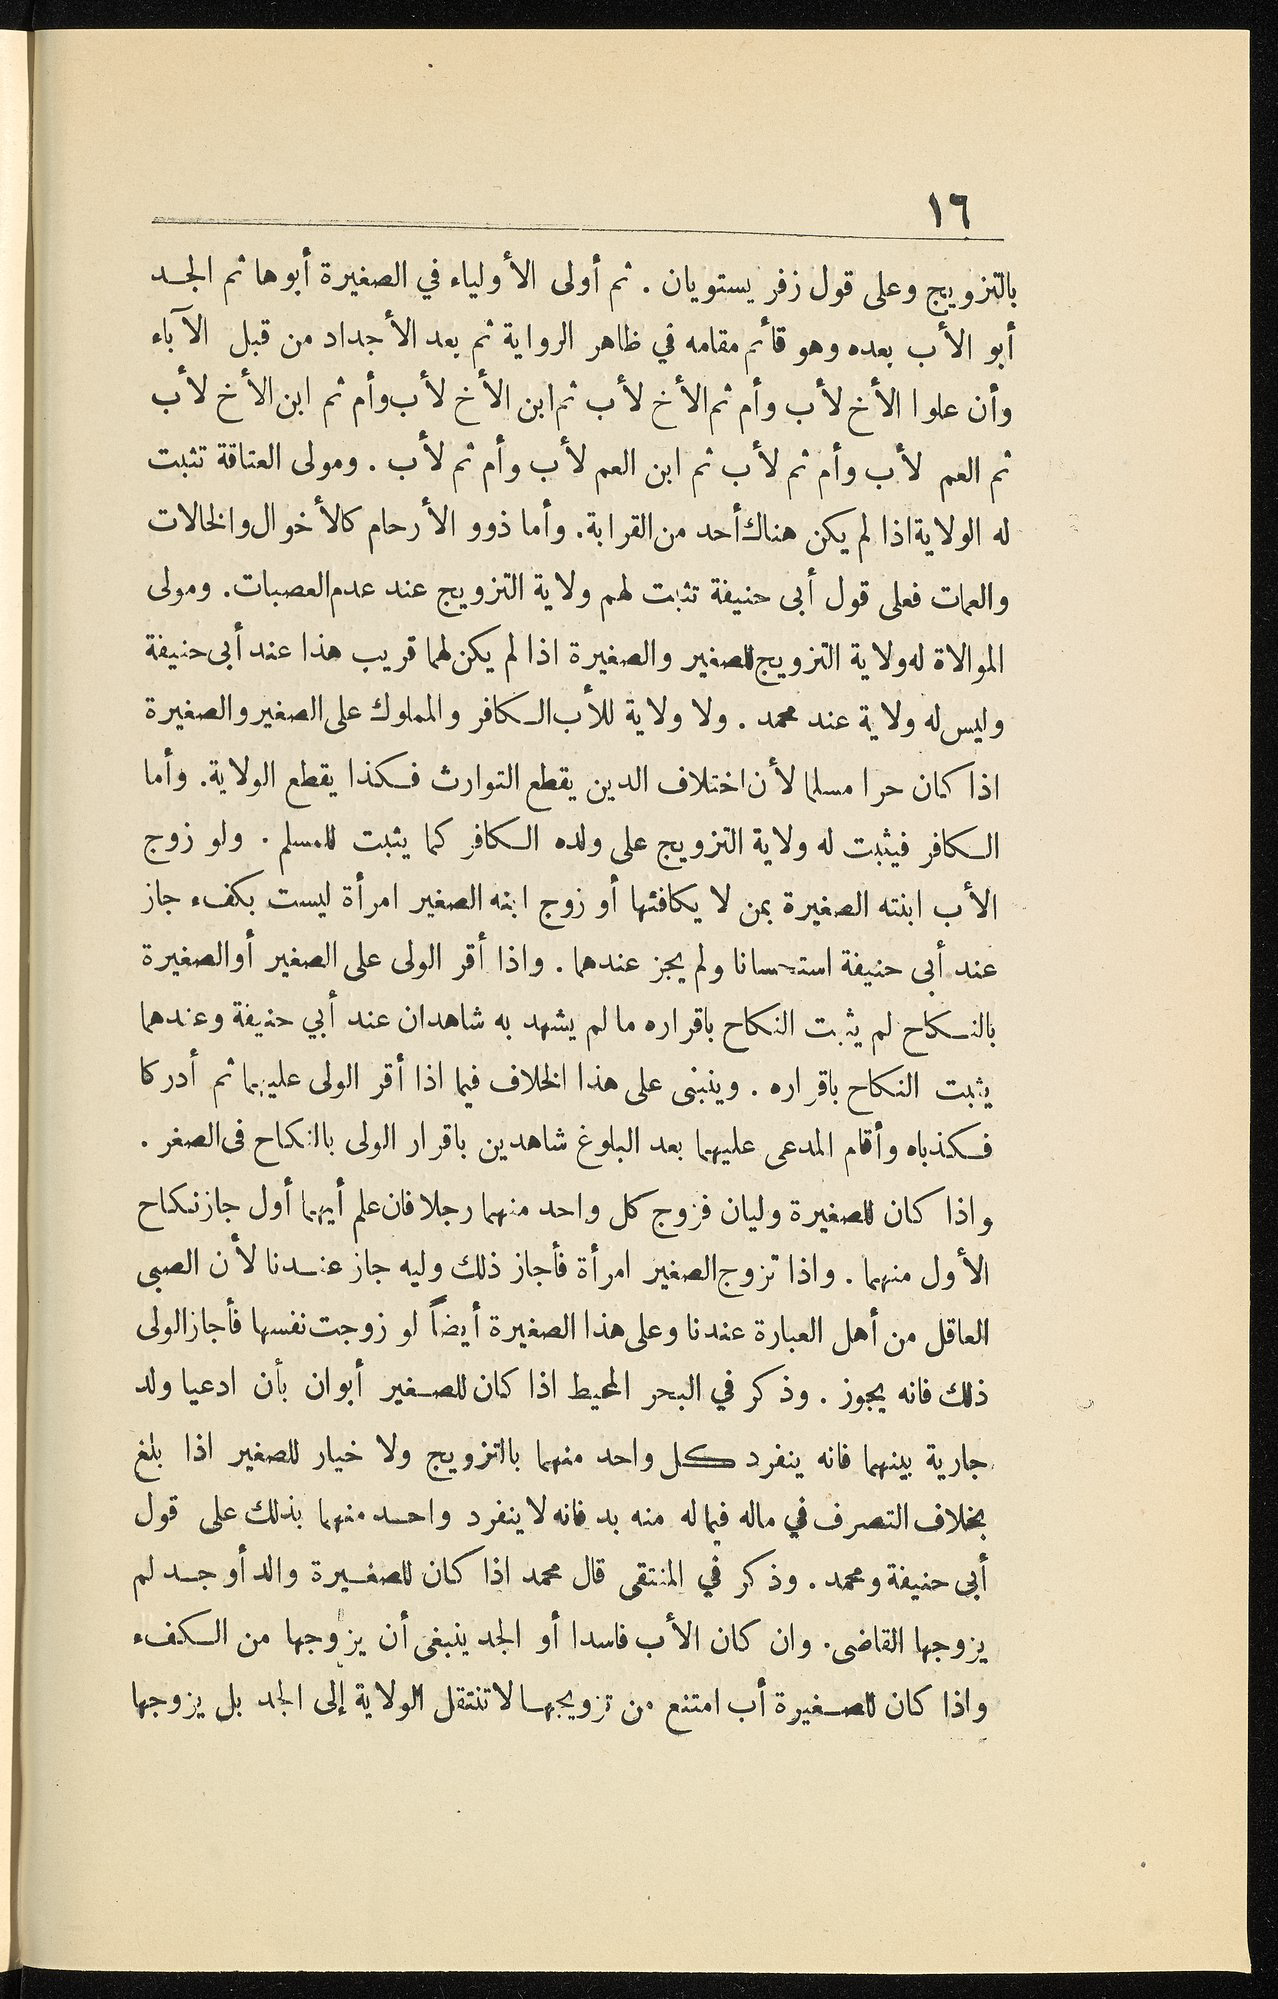 ١٦
بالتزويج وعلى قول زفر يستويان . ثم أولى الأولياء في الصغيرة أبوها ثم الجد
أبو الأب بعده وهو قائم مقامه في ظاهر الرواية ثم بعد الأجداد من قبل الآباء
وأن علوا الأخ لأب وأم ثم الأخ لأب ثم ابن الأخ لأب وأم ثم ابن الأخ لأب
ثم العم لأب وأم ثم لأب ثم ابن العم لأب وأم ثم لأب . ومولى العتاقة تثبت
له الولاية اذا لم يكن هناك أحد من القرابة. وأما ذوو الأرحام كالأخوال والخالات
والعمات فعلى قول أبى حنيفة تثبت لهم ولاية التزويج عند عدم العصبات. ومولى
الموالاة له ولاية التزويج للصغير والصغيرة اذا لم يكن لهما قريب هذا عند أبى حنيفة
وليس له ولاية عند محمد . ولا ولاية للأب الكافر والمملوك على الصغير والصغيرة
اذا كان حرا مسلما لأن اختلاف الدين يقطع التوارث فكذا يقطع الولاية. وأما
الكافر فيثبت له ولاية التزويج على ولده الكافر كما يثبت للمسلم . ولو زوج
الأب ابنته الصغيرة بمن لا يكافئها أو زوج ابنه الصغير امرأة ليست بكفء جاز
عند أبى حنيفة استحسانا ولم يجز عندهما . واذا أقر الولى على الصغير أو الصغيرة
بالنكاح لم يثبت النكاح باقراره ما لم يشهد به شاهدان عند أبي حنيفة وعندهما
يثبت النكاح باقراره . وينبنى على هذا الخلاف فيما اذا أقر الولى عليهما ثم أدركا
فكذباه وأقام المدعى عليهما بعد البلوغ شاهدين باقرار الولى بالنكاح فى الصغر .
واذا كان للصغيرة وليان فزوج كل واحد منهما رجلا فان علم أيهما أول جاز نكاح
الأول منهما . واذا تزوج الصغير امرأة فأجاز ذلك وليه جاز عندنا لأن الصبى
العاقل من أهل العبارة عندنا وعلى هذا الصغيرة أيضاً لو زوجت نفسها فأجاز الولى
ذلك فانه يجوز . وذكر في البحر المحيط اذا كان للصغير أبوان بأن ادعيا ولد
جارية بينهما فانه ينفرد كل واحد منهما بالتزويج ولا خيار للصغير اذا بلغ
بخلاف التصرف في ماله فيما له منه بد فانه لا ينفرد واحد منهما بذلك على قول
أبى حنيفة ومحمد . وذكر في المنتقى قال محمد اذا كان للصغيرة والد أو جد لم
يزوجها القاضى. وان كان الأب فاسدا أو الجد ينبغى أن يزوجها من الكفء
واذا كان للصغيرة أب امتنع من تزويجها لا تنتقل الولاية إلى الجد بل يزوجها